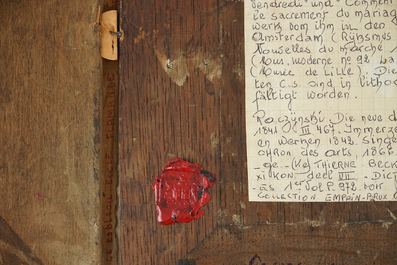 Vendredi" und "Comment
le sacrement du mariag
werk von ihm in den
Amsterdam (Ryksmus
Nouvelles du marché 1
(Mus. moderne nº 92 La
(Musée de Lille). Die
ten C.S. sind in lithog
fältigt worden.
Raczynski Die neue d
1841 III 467. Immerzee
en werken 1842. Singe
gyron des arts, 186
ge - (Ke) THIEME - BECK
XIKON. deel VII - Dict
-ES 1er Vol P. 972. voir
COLLECTION EMPAIN-BRUX